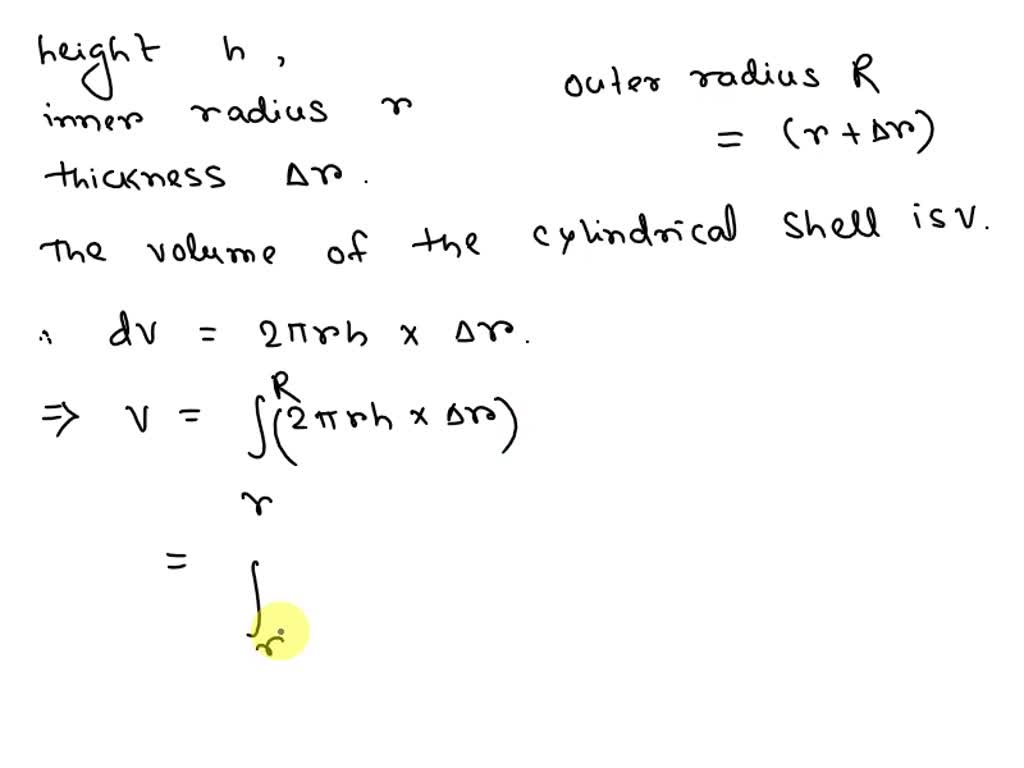 height h,
inner radius r
outer radius R
= (r + Δr)
thickness Δr.
The volume of the cylindrical shell is V.
∴ dV = 2πrh × Δr.
⇒ V = ∫_r^R (2πrh × Δr)
= ∫_r